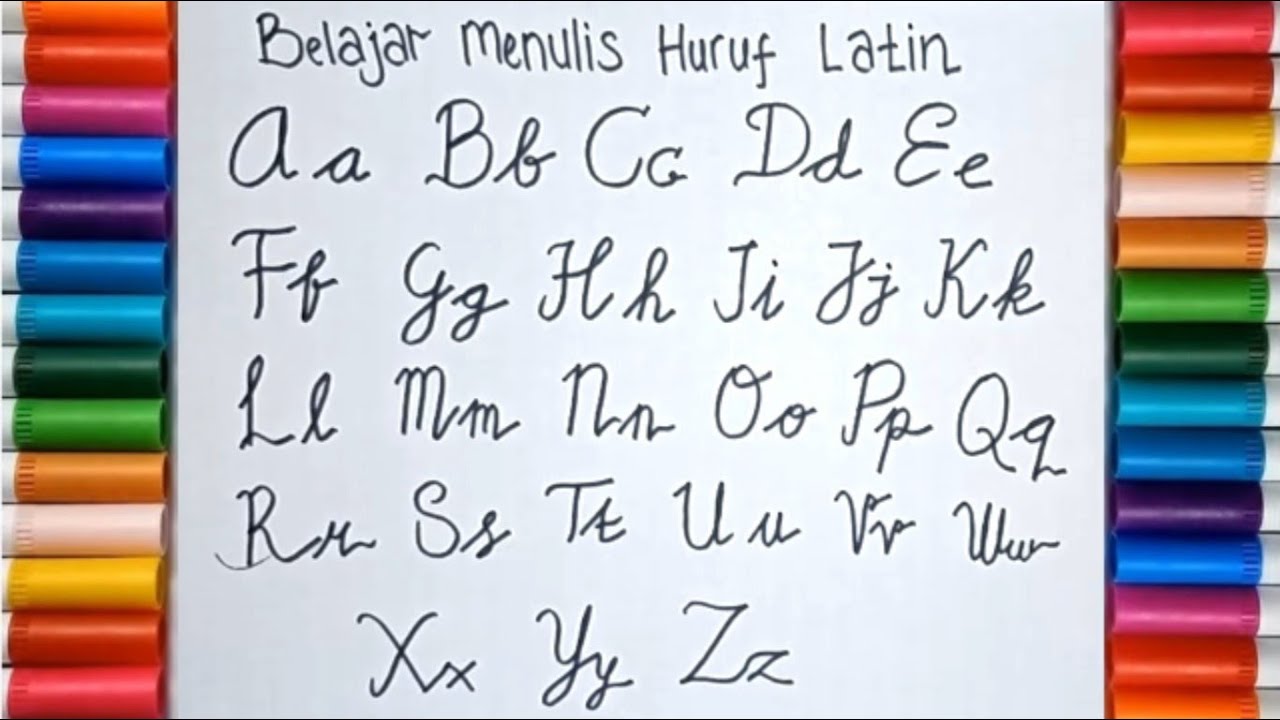 Belajar Menulis Huruf Latin
Aa Bb Cc Dd Ee
Ff Gg Hh Ii Jj Kk
Ll Mm Nn Oo Pp Qq
Rr Ss Tt Uu Vv Ww
Xx Yy Zz